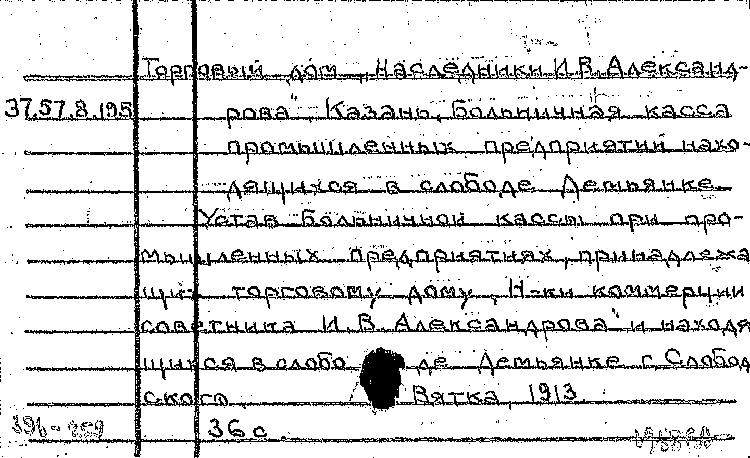 Торговый дом „Наследники И.В. Александ-
37.57.8.195 рова", Казань, больничная касса
промышленных предприятий нахо-
дящихся в слободе Демьянке.
Устав больничной кассы при про-
мышленных предприятиях, принадлежа
щих торговому дому „Н-ки коммерции
советника И.В. Александрова" и находя
щихся в слобо де Демьянке г. Слобод
ского. Вятка, 1913.
36 с.